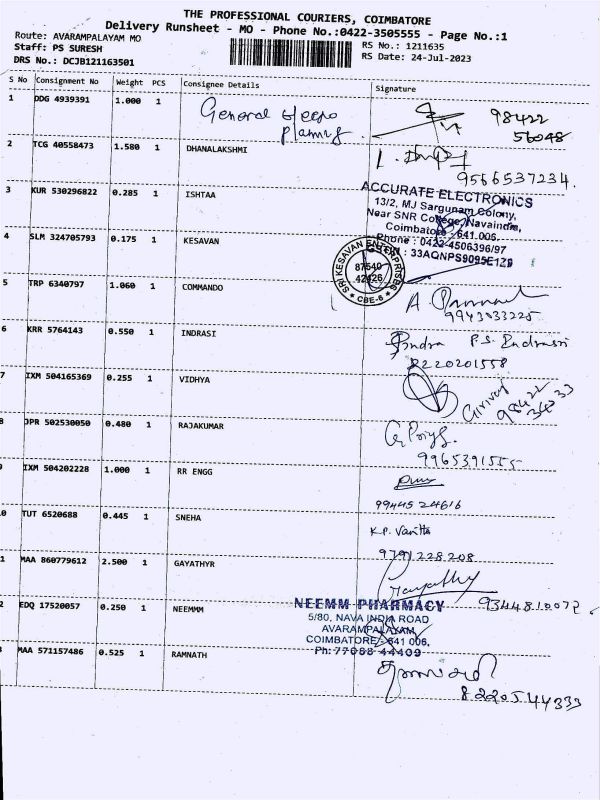 THE PROFESSIONAL COURIERS, COIMBATORE
Delivery Runsheet - MO - Phone No.:0422-3505555 - Page No.:1
Route: AVARAMPALAYAM MO
Staff: PS SURESH
DRS No.: DCJB121163501
RS No.: 1211635
RS Date: 24-Jul-2023
S No Consignment No Weight PCS Consignee Details Signature
1 DDG 4939391 1.000 1 General
98422
56048
2 TCG 40558473 1.580 1 DHANALAKSHMI
9566537234.
3 KUR 530296822 0.285 1 ISHTAA
ACCURATE ELECTRONICS
13/2, MJ Sargunam Colony,
Near SNR College, Navaindia,
Coimbatore - 641 006.
Phone : 0422-4506396/97
: 33AQNPS9095E1Z9
4 SLM 324705793 0.175 1 KESAVAN
SRI KESAVAN ENTERPRISES
87540
42426
CBE-6
5 TRP 6340797 1.060 1 COMMANDO
A
9943033225
6 KRR 5764143 0.550 1 INDRASI
Indra P.S. Indrasri
8220201558
7 IXM 504165369 0.255 1 VIDHYA
Giriraj
98422
34033
8 JPR 502530050 0.480 1 RAJAKUMAR
G. Priya.
9965391555
9 IXM 504202228 1.000 1 RR ENGG
9944524616
0 TUT 6520688 0.445 1 SNEHA
K.P. Vanitha
9791228208
1 MAA 860779612 2.500 1 GAYATHYR
Gayathry
9344810072
2 EDQ 17520057 0.250 1 NEEMMM
NEEMM PHARMACY
5/80, NAVA INDIA ROAD
AVARAMPALAYAM,
COIMBATORE - 641 006.
Ph: 77088 44409
3 MAA 571157486 0.525 1 RAMNATH
8220544333